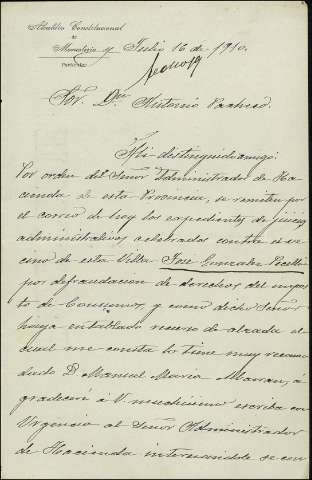 Alcaldía Constitucional
de
y Julio 16 de 1910.
Sor. Dn. Antonio Pacheco.
Mi distinguido amigo:
Por orden del Señor Administrador de Ha-
cienda de esta Provincia, se remiten por
el correo de hoy los expedientes de juicios
administrativos celebrados contra el ve-
cino de esta Villa Jose Gonzalez
por defraudacion de derechos del impues-
to de Consumos, y como dicho Señor
haya entablado recurso de alzada el
cual me consta lo tiene muy recomen-
dado D. Manuel Maria a
gradeceré a V. muchisimo escriba con
Urgencia al Señor Administrador
de Hacienda interesandole se con